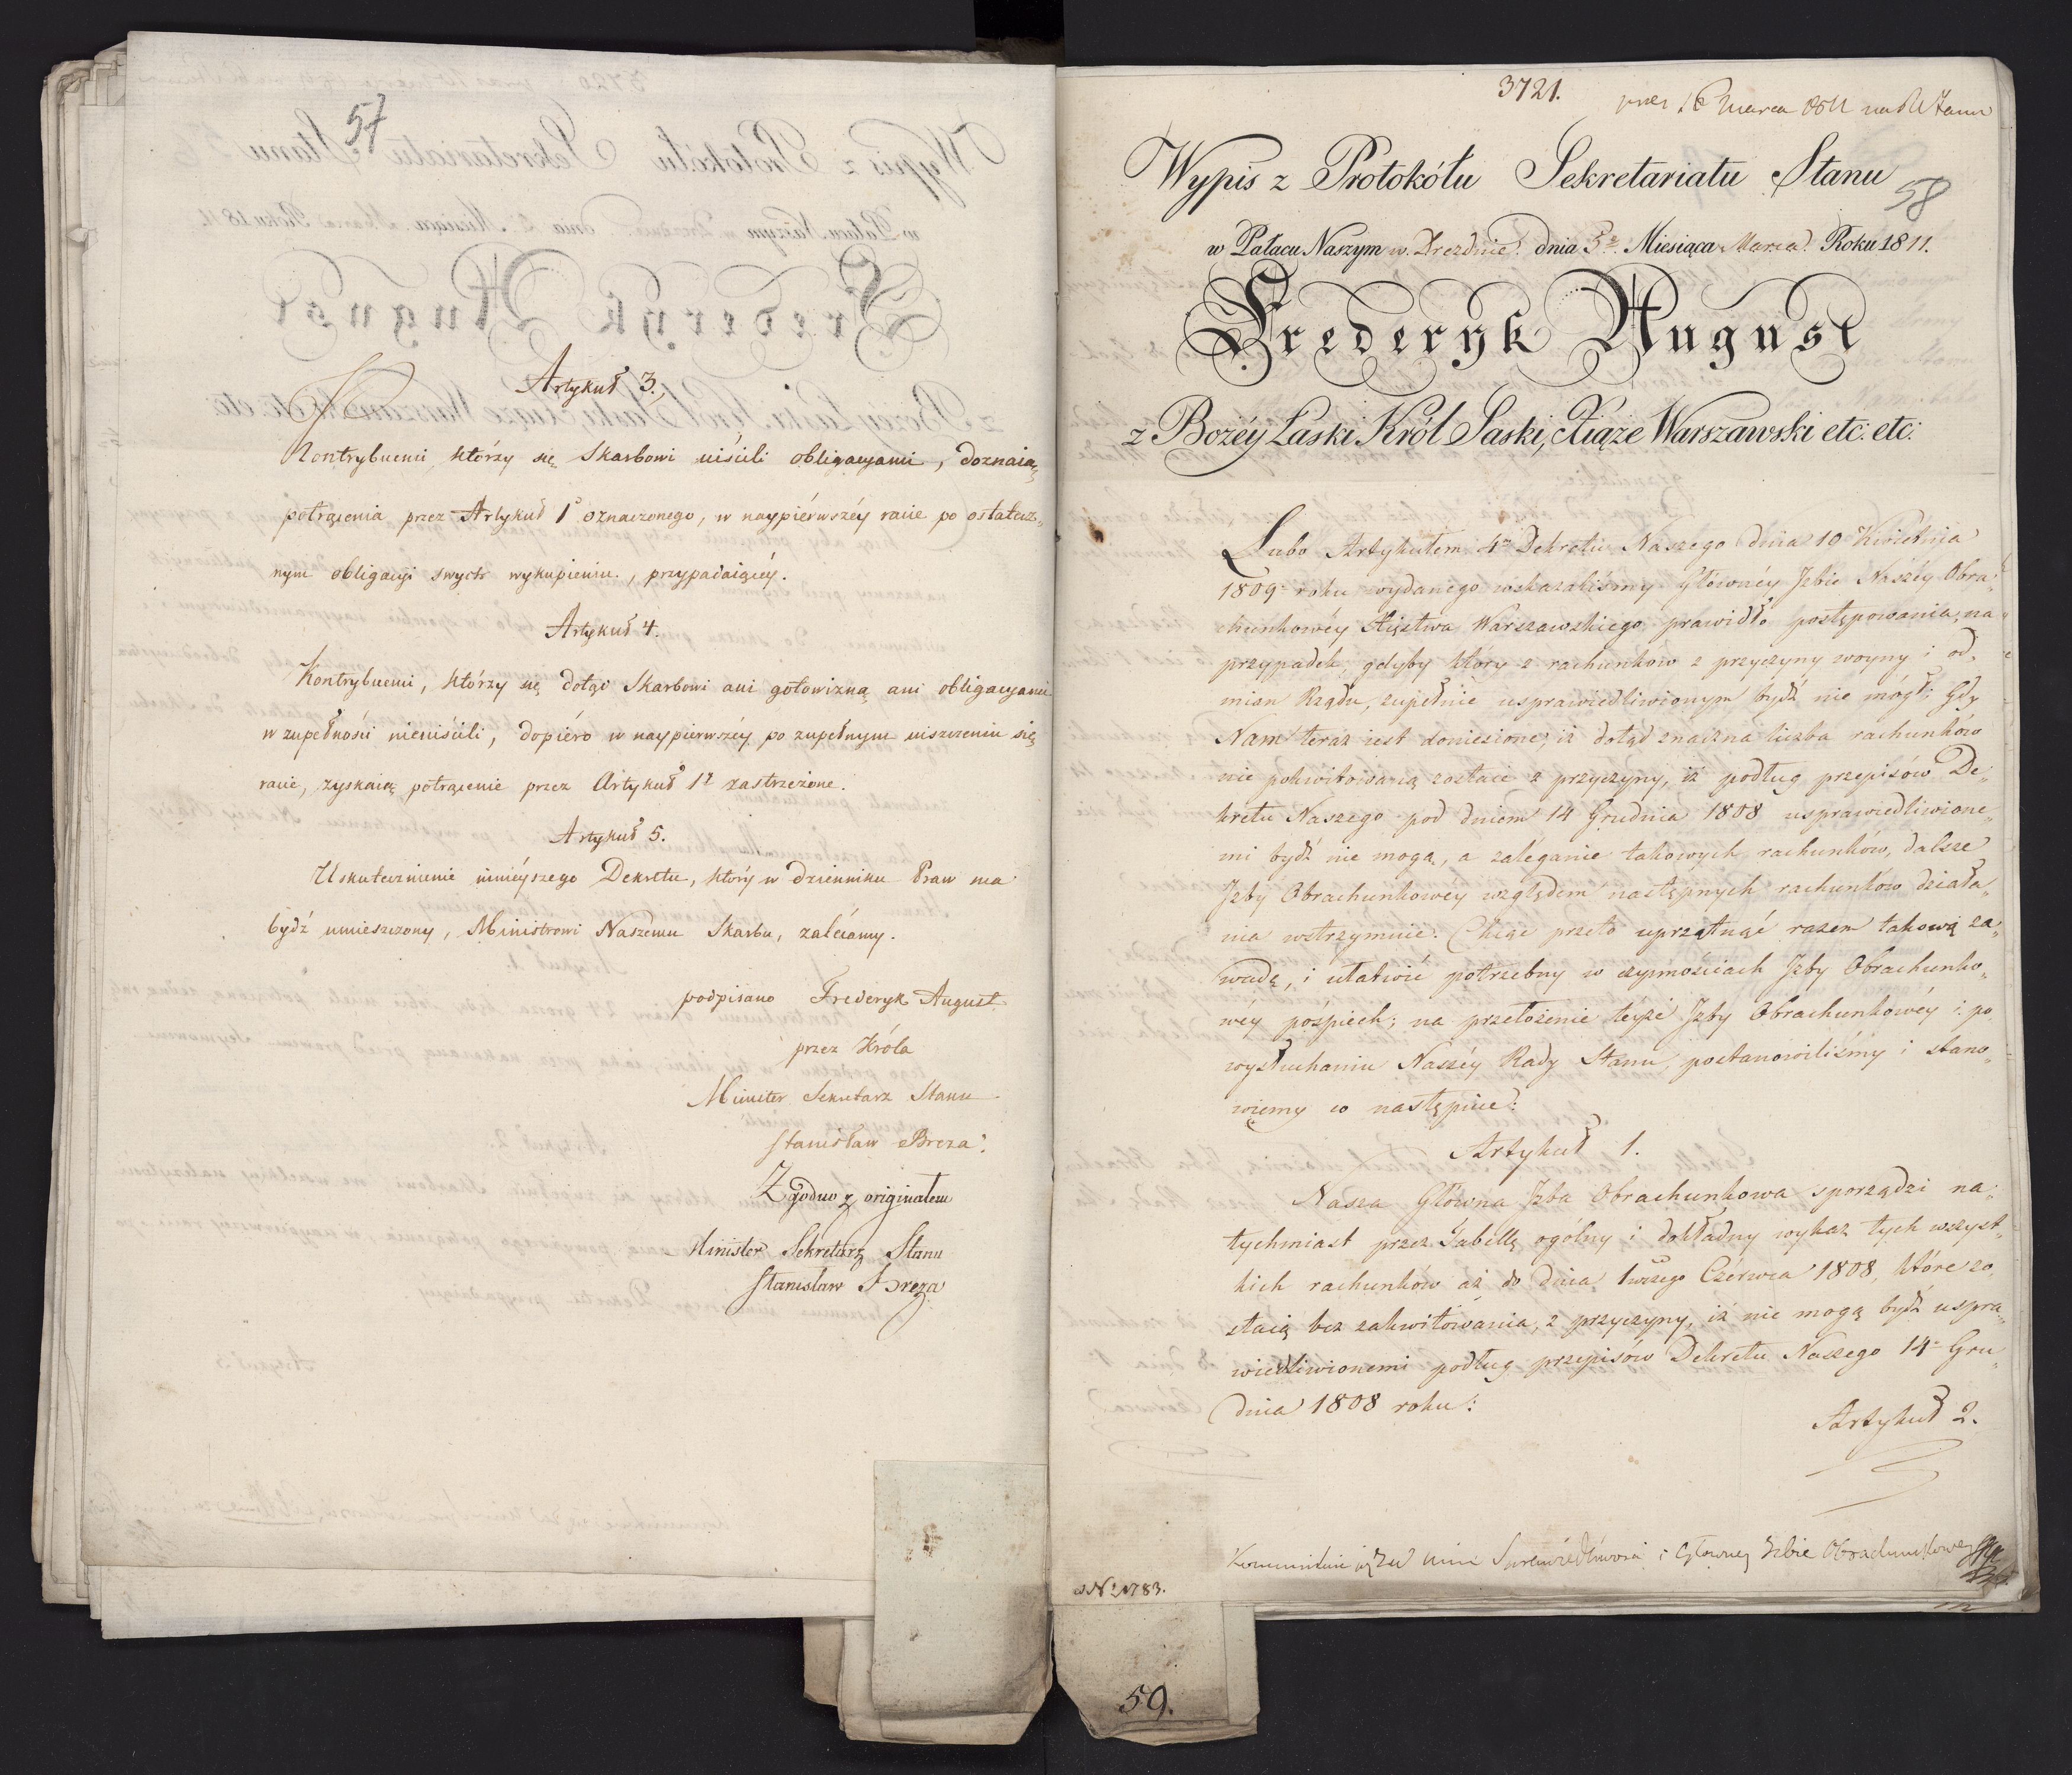 57
Artykuł 3.
Kontrybuenci, którzy się Skarbowi uiścili obligacyami, doznaią
potrącenia przez Artykuł 1° oznaczonego, w naypiérwszéy racie po ostatecz„
nym obligacyi swych wykupieniu, przypadaiącéy.
Artykuł 4.
Kontrybuenci, którzy się dotąd Skarbowi ani gotowizną ani obligacyami
w zupełności nieuiścili, dopiéro w naypierwszéy po zupełnym uiszczeniu się
racie, zyskaią potrącenie przez Artykuł 1° zastrzeżone.
Artykuł 5.
Uskutecznienie ninieyszego Dekretu, który w dzienniku Praw ma
bydź umieszczony, Ministrowi Naszemu Skarbu, zalécamy.
podpisano Frederyk August
przez Króla
Minister Sekretarz Stanu
Stanisław Breza.
Zgodno z originałem
Minister Sekretarz Stanu
Stanisław Breza
3721.
16 Marca 1811 na R Stanu
Wypis z Protokółu Sekretariatu Stanu
58
w Pałacu Naszym w Dreznie. dnia 5° Miesiąca Marca. Roku 1811.
Frederyk August
z Bożéy Łaski Król Saski, Xiąże Warszawski etc: etc:
Lubo Artykułem 4m Dekretu Naszego dnia 10 Kwietnia
1809 roku wydanego wskazaliśmy Głównéy Izbie Naszéy Obra„
chunkowéy Xięstwa Warszawskiego prawidło postępowania, na
przypadek, gdyby który z rachunków z przyczyny woyny i od„
mian Rządu, zupełnie usprawiedliwionym bydź nie mógł; Gdy
Nam teraz iest doniesione, iż dotąd znaczna liczba rachunków
nie pokwitowaną zostaie z przyczyny, iż podług przepisów De„
kretu Naszego pod dniem 14 Grudnia 1808 usprawiedliwione„
mi bydź nie mogą, a zaléganie takowych rachunków, dalsze
Izby Obrachunkowéy względem następnych rachunków działa„
nia wstrzymuie. Chcąc przeto uprzątnąć razem takową za„
wadę, i ułatwić potrzebny w czynnościach Izby Obrachunko„
wéy pośpiech; na przełożenie téyże Izby Obrachunkowéy i po
wysłuchaniu Naszéy Rady Stanu, postanowiliśmy i stano„
wiemy co następuie:
Artykuł 1.
Nasza Główna Izba Obrachunkowa sporządzi na„
tychmiast przez Tabellę ogólny i dokładny wykaz tych wszyst„
kich rachunków aż do dnia 1wszego Czérwca 1808, które zo„
staią bez zakwitowania, z przyczyny, iż nie mogą bydź uspra„
wiedliwionemi podług przepisów Dekretu Naszego 14 Gru„
dnia 1808 roku:
Artykuł 2.
Kommunikuie się Min Sprawiedliwości i Głowney Izbie Obrachunkowey
59.